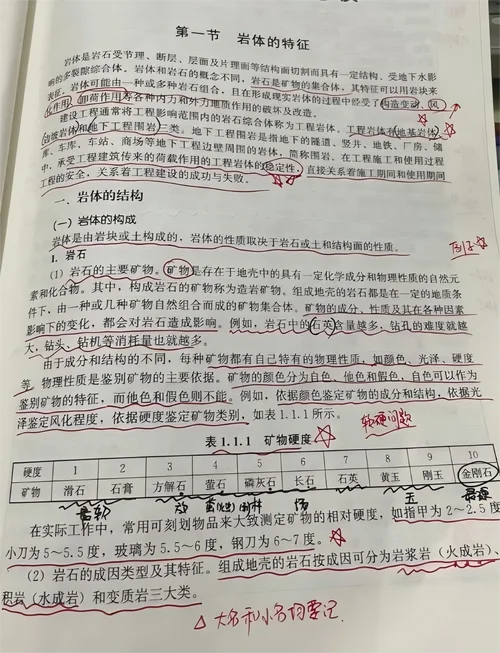 第一节 岩体的特征
岩体是岩石受节理、断层、层面及片理面等结构面切割而具有一定结构、受地下水影
响的多裂隙综合体。岩体和岩石的概念不同，岩石是矿物的集合体，其特征可以用岩块来
表征。岩体可能由一种或多种岩石组合，且在形成现实岩体的过程中经受了构造变动、风
化作用、卸荷作用等各种内力和外力地质作用的破坏及改造。
建设工程通常将工程影响范围内的岩石综合体称为工程岩体。工程岩体有地基岩体、
边坡岩体和地下工程围岩三类。地下工程围岩是指地下的隧道、竖井、地铁、厂房、储
库、车库、车站、商场等地下工程边壁周围的岩体，简称围岩。在工程施工和使用过程
中，承受工程建筑传来的荷载作用的工程岩体的稳定性，直接关系着施工期间和使用期间
工程的安全，关系着工程建设的成功与失败。
一、岩体的结构
（一）岩体的构成
岩体是由岩块或土构成的，岩体的性质取决于岩石或土和结构面的性质。
例子
1. 岩石
（1）岩石的主要矿物。矿物是存在于地壳中的具有一定化学成分和物理性质的自然元
素和化合物。其中，构成岩石的矿物称为造岩矿物。组成地壳的岩石都是在一定的地质条
件下，由一种或几种矿物自然组合而成的矿物集合体。矿物的成分、性质及其在各种因素
影响下的变化，都会对岩石造成影响。例如，岩石中的石英含量越多，钻孔的难度就越
大，钻头、钻机等消耗量也就越多。
由于成分和结构的不同，每种矿物都有自己特有的物理性质，如颜色、光泽、硬度
等。物理性质是鉴别矿物的主要依据。矿物的颜色分为自色、他色和假色，自色可以作为
鉴别矿物的特征，而他色和假色则不能。例如，依据颜色鉴定矿物的成分和结构，依据光
泽鉴定风化程度，依据硬度鉴定矿物类别，如表 1.1.1 所示。
软硬问题
表 1.1.1 矿物硬度
硬度 1 2 3 4 5 6 7 8 9 10
矿物 滑石 石膏 方解石 萤石 磷灰石 长石 石英 黄玉 刚玉 金刚石
最软 方 萤 林 伤 五 最硬
在实际工作中，常用可刻划物品来大致测定矿物的相对硬度，如指甲为 2～2.5度，
小刀为 5～5.5 度，玻璃为 5.5～6 度，钢刀为 6～7 度。
（2）岩石的成因类型及其特征。组成地壳的岩石按成因可分为岩浆岩（火成岩）、
积岩（水成岩）和变质岩三大类。
△ 大名和小名均要记